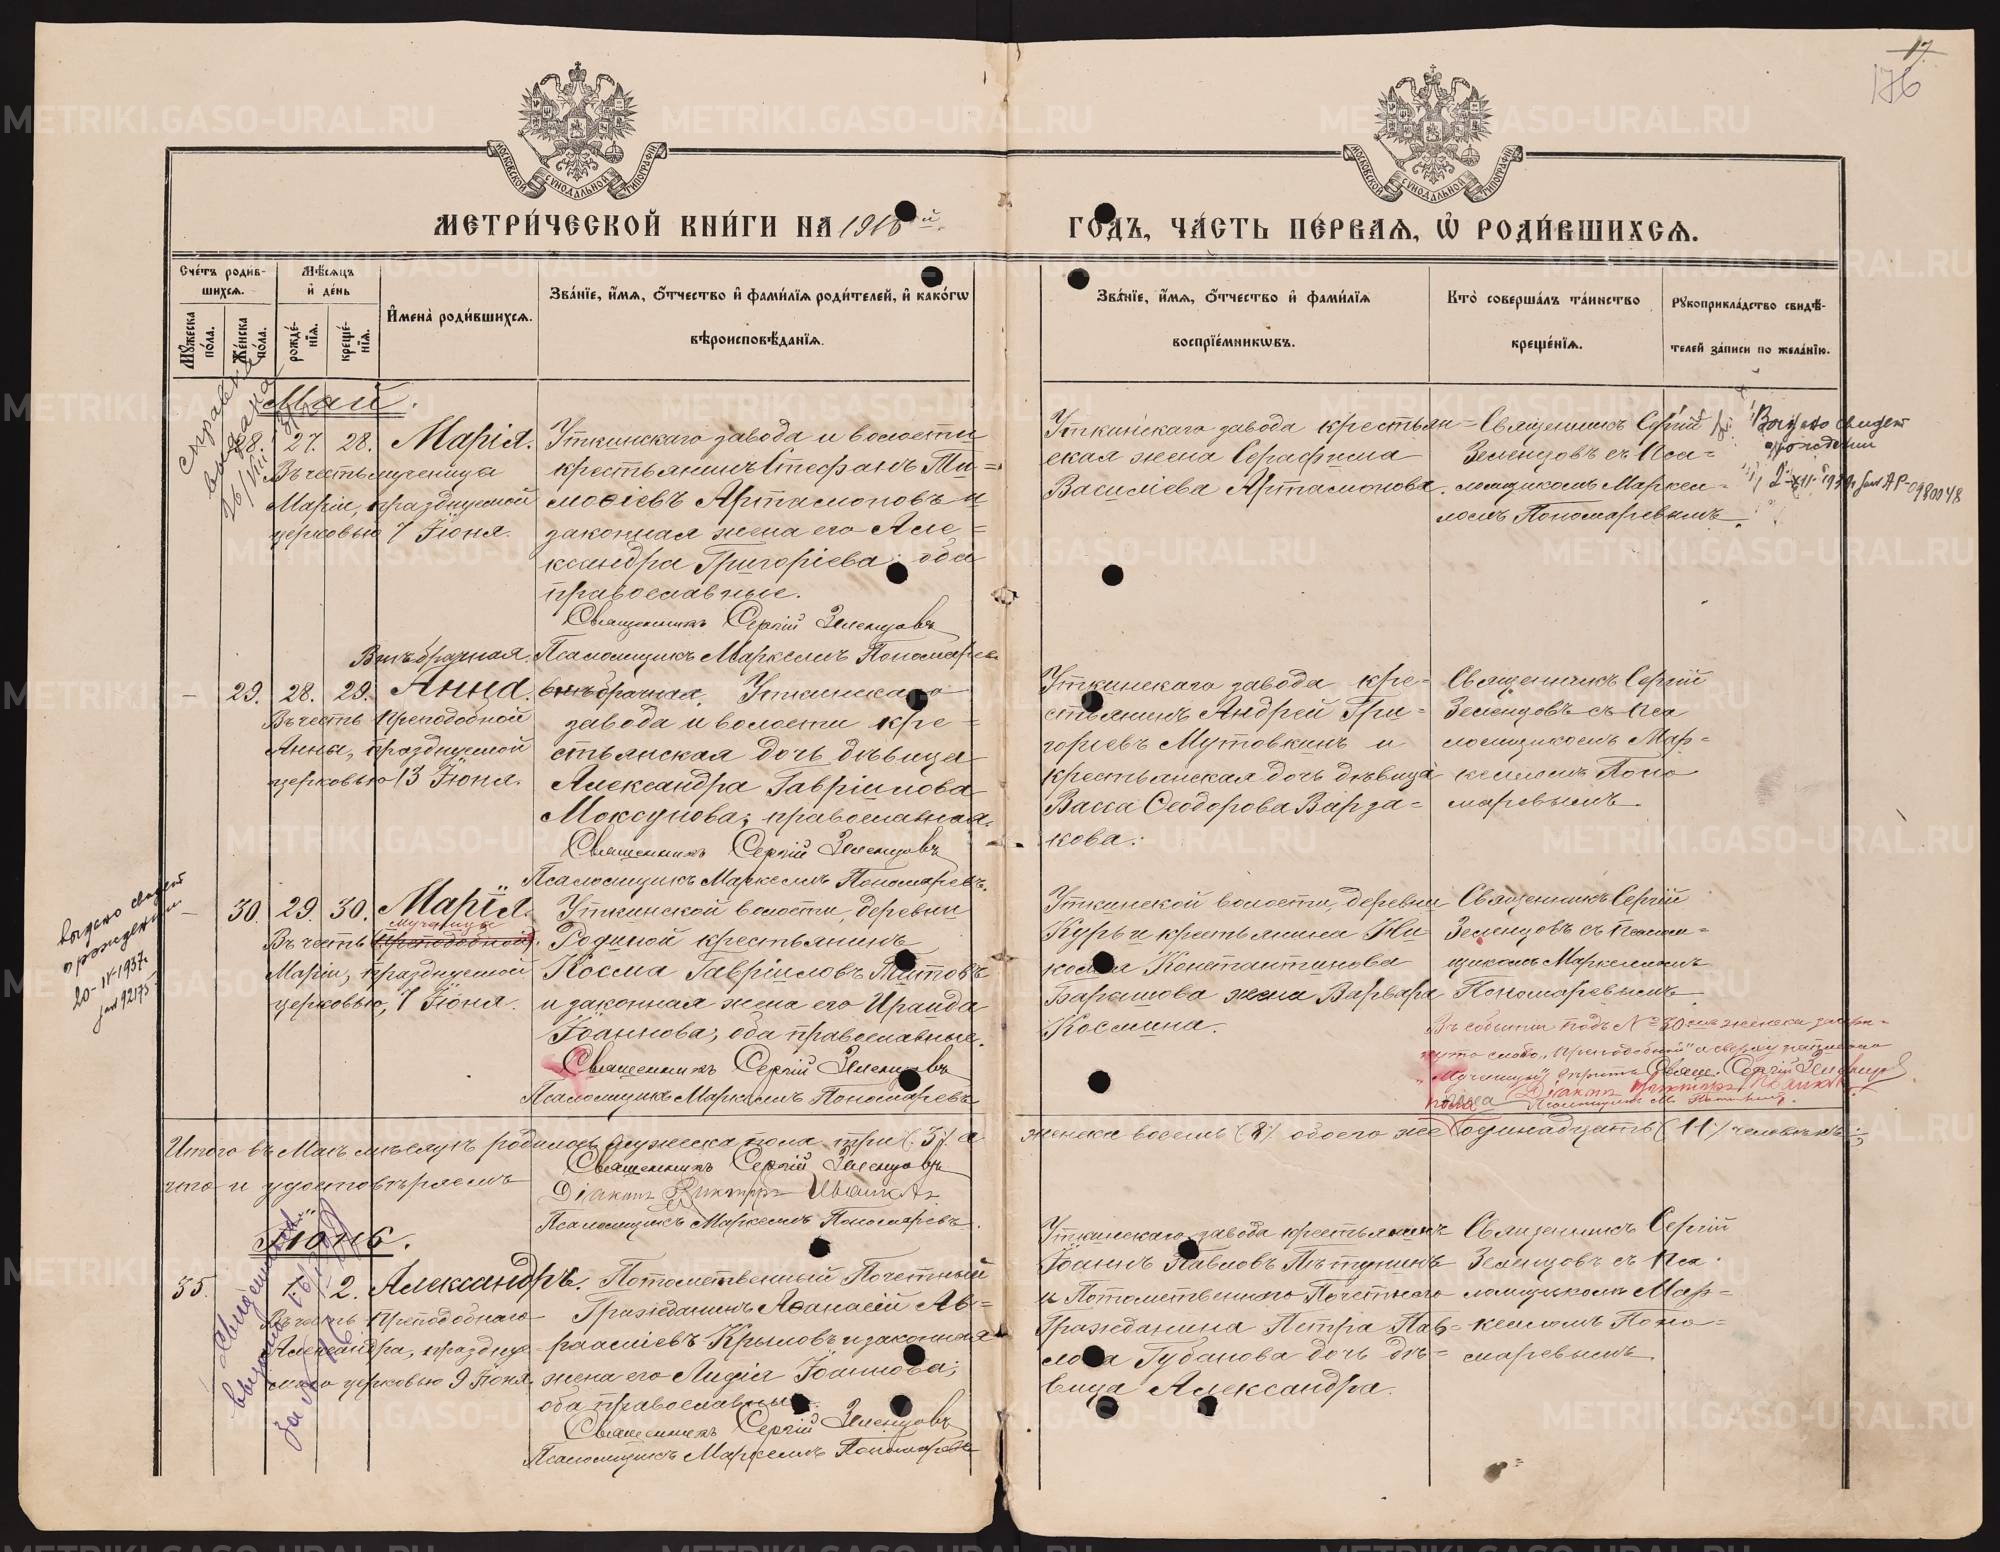 17.
176
МОСКОВСКОЙ СѴНОДАЛЬНОЙ ТИПОГРАФІИ
МОСКОВСКОЙ СѴНОДАЛЬНОЙ ТИПОГРАФІИ
МЕТРИ́ЧЕСКОЙ КНИ́ГИ НА 1916й.
ГО́ДЪ, ЧА́СТЬ ПЕ́РВАЯ, Ѡ҆ РОДИ́ВШИХСЯ.
Сче́тъ роди́в-
шихся.
Му́жеска по́ла.
Же́нска по́ла.
Мѣ́сяцъ
и҆ де́нь
рожде́нїя.
креще́нїя.
И҆мена̀ роди́вшихся.
Зва́нїе, и҆́мя, ѻ҆́тчество и҆ фами́лїя роди́телей, и҆ како́гѡ
вѣроисповѣ́данїя.
Зва́нїе, и҆́мя, ѻ҆́тчество и҆ фами́лїя
воспрїе́мникѡвъ.
Кто̀ соверша́лъ та́инство
креще́нїя.
Рꙋкоприкла́дство свидѣ́-
телей за́писи по жела́нїю.
Май.
справка
выдана
28. 27. 28. Марія.
Въ честь мученицы
Маріи, празднуемой
церковью 7 Іюня.
Уткинскаго завода и волости
крестьянинъ Стефанъ Ти=
моѳіевъ Артамоновъ и
законная жена его Але=
ксандра Григоріева; оба
православные.
Священникъ Сергій Зеленцовъ
Псаломщикъ Маркеллъ Пономаревъ
Уткинскаго завода крестьян=
ская жена Серафима
Василіева Артамонова.
Священникъ Сергій
Зеленцовъ съ Пса=
ломщикомъ Маркел=
ломъ Пономаревымъ.
Выдано свидет
о рождении
Внѣбрачная.
— 29. 28. 29. Анна.
Въ честь Преподобной
Анны, празднуемой
церковью 13 Іюня.
внѣбрачная. Уткинскаго
завода и волости кре=
стьянская дочь дѣвица
Александра Гавріилова
Моксунова; православная.
Священникъ Сергій Зеленцовъ
Псаломщикъ Маркеллъ Пономаревъ.
Уткинскаго завода кре=
стьянинъ Андрей Гри=
горіевъ Мутовкинъ и
крестьянская дочь дѣвица
Васса Ѳеодорова Варза=
кова.
Священникъ Сергій
Зеленцовъ съ Пса
ломщикомъ Мар=
келломъ Поно
маревымъ.
выдано свидет
о рождении
20-IV-1937г.
— 30. 29. 30. Марія.
мученицы
Въ честь (Преподобной)
Маріи, празднуемой
церковью, 7 Іюня.
Уткинской волости, деревни
Родиной крестьянинъ
Косма Гавріиловъ Титовъ
и законная жена его Ираида
Іоаннова; оба православные.
Священникъ Сергій Зеленцовъ
Псаломщикъ Маркеллъ Пономаревъ
Уткинской волости, деревни
Курьи крестьянина Ни
колая Константинова
Барашова жена Варвара
Космина.
Священникъ Сергій
Зеленцовъ съ Псалом=
щикомъ Маркелломъ
Пономаревымъ.
Въ событіи подъ № 30 женска зачерк=
нуто слово „Преподобной" и сверху написано
„Мученицы" Свящ. Сергій Зеленцовъ
Діаконъ Викторъ
Итого въ Маѣ мѣсяцѣ родилось мужеска пола три (3), а
женска восемь (8), обоего же одинадцать (11) человѣкъ;
что и удостовѣряемъ
Священникъ Сергій Зеленцовъ
Діаконъ Викторъ
Псаломщикъ Маркеллъ Пономаревъ.
Іюнь.
Свидетельство
выдано
за №
35. 1. 2. Александръ.
Въ честь Преподобнаго
Александра, праздну=
емаго церковью 9 Іюня.
Потомственный Почетный
Гражданинъ Аѳанасій Ав=
рааміевъ Крыловъ и законная
жена его Лидія Іоаннова;
оба православные.
Священникъ Сергій Зеленцовъ
Псаломщикъ Маркеллъ Пономаревъ
Уткинскаго завода крестьянинъ
Іоаннъ Павловъ Пѣтунинъ
и Потомственнаго Почетнаго
Гражданина Петра Пав=
лова Губанова дочь дѣ=
вица Александра.
Священникъ Сергій
Зеленцовъ съ Пса
ломщикомъ Мар=
келломъ Поно=
маревымъ.
METRIKI.GASO-URAL.RU